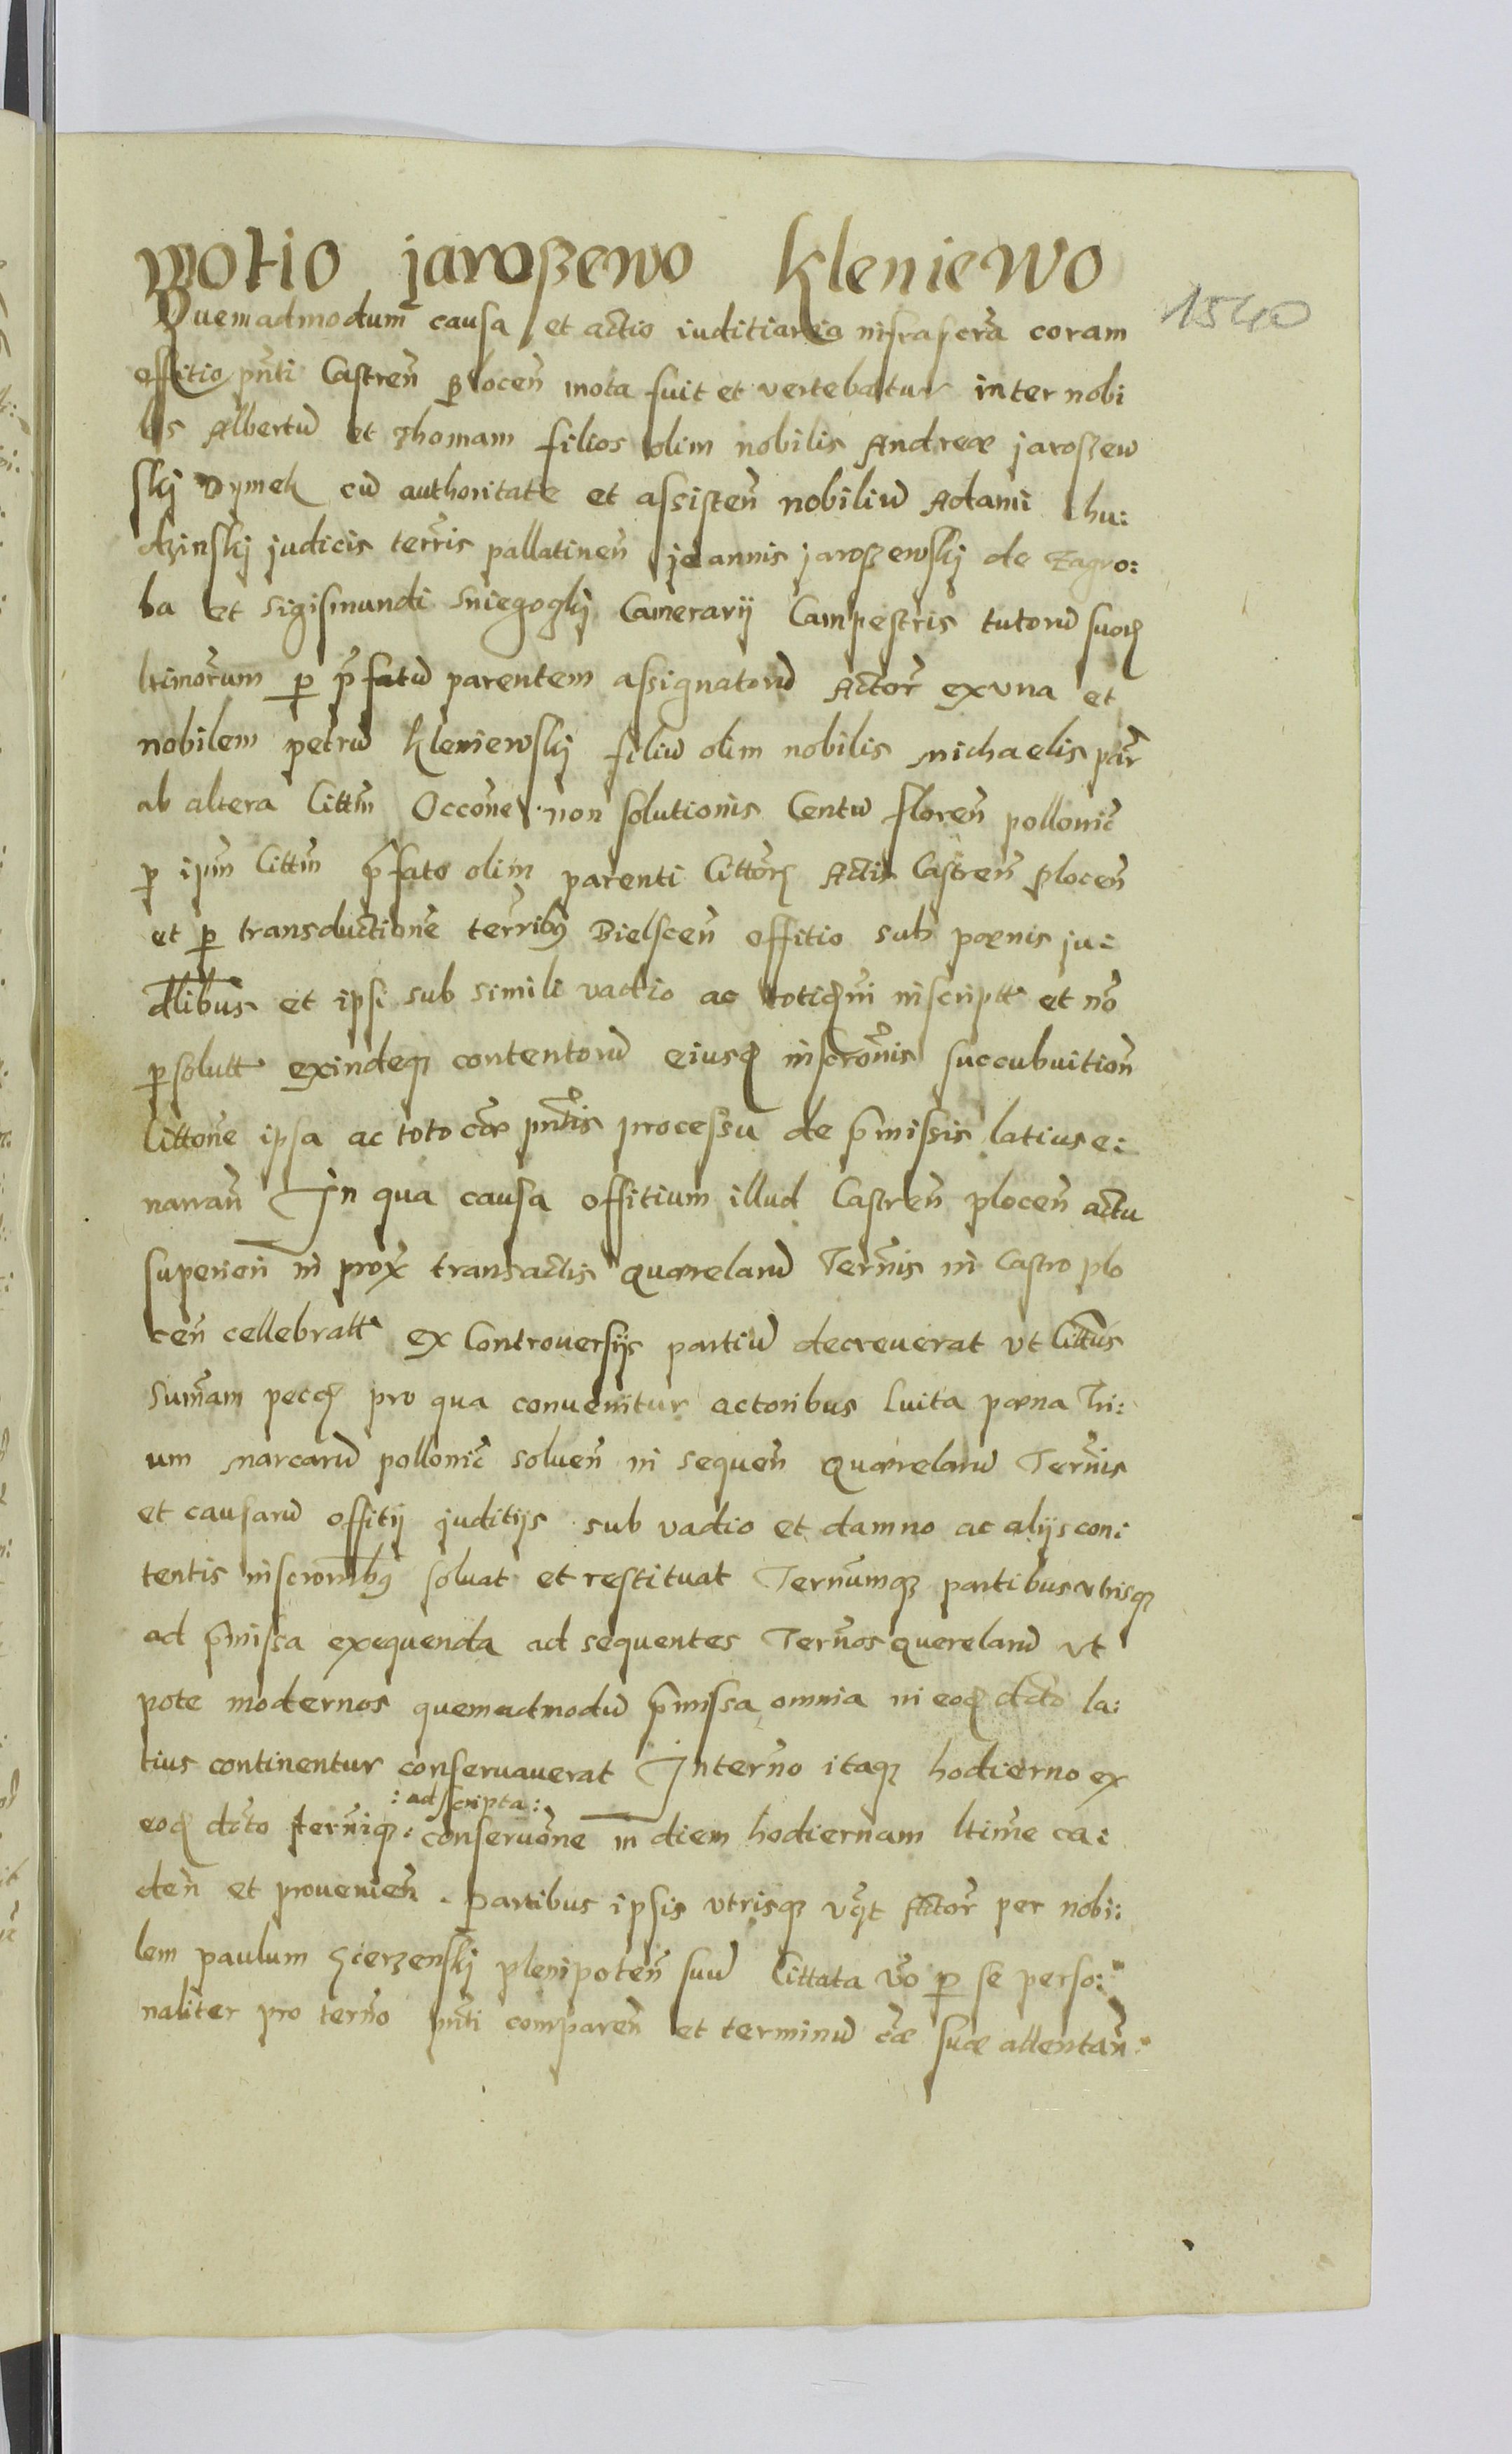 Motio jaroßewo Kleniewo
1540
Quemadmodum causa et actio iuditiaria infrascrã coram
offitio pñti Castreñ Plocen̄ mota fuit et vertebatur inter nobi
les Albertũ et Thomam filios olim nobilis Andreæ jaroßew
skj Dymek cũ authoritate et assisten̄ nobiliũ Adami Chu:
dzinskj judicis terr̃is pallatinen̄ joannis jaroßewskj de Zagro:
ba et Sigismundi Sniegogkj Camerarij Campestris tutorũ suoꝝ
ltimor̃um ꝑ p̃fatũ parentem assignatorũ Actor̃ ex vna et
nobilem petrũ Kleniewskj filiũ olim nobilis Michaelis par̃
ab altera Cittm̃ Occõne non solutionis Centũ floren̄ pollonic̃
ꝑ ipm̃ Cittm̃ p̃fato olim parenti Cittorꝝ Actis Castren̄ plocen̄
et ꝑ transductionẽ terr̃ibꝫ Bielscen̄ offitio sub pœnis ju:
dlibus et ipsi sub simili vadio ac totidm̃ inscriptt et nõ
ꝑsolutt exindeqꝫ contentorũ eiusd inscrõnis succubuition̄
Cittone ipsa ac toto cãæ pñtis processu de p̃missis latius e:
narran̄ In qua causa offitium illud Castren̄ plocen̄ actu
superien̄ in prox̃ transactis Quærelarũ Ter̃nis in Castro plo
cen̄ cellebratt ex Controuersijs partiũ decreuerat vt Citt̃us
Sum̃am pecꝝ pro qua conuenitur actoribus luita pœna Tri:
um Marcarũ pollonic̃ soluen̄ in sequen̄ Quærelarũ Ter̃nis
et causarũ offitij juditijs sub vadio et damno ac alijs con:
tentis inscrõnibꝫ soluat et restituat Ter̃numqꝫ partibus vtrisqꝫ
ad p̃missa exequenda ad sequentes Ter̃nos querelarũ vt
pote modernos quemadmodũ p̃missa omnia in eod dcto la:
tius continentur conseruauerat In ter̃no itaqꝫ hodierno ex
:adscripta:
eod dcto ter̃niqꝫ: conseruõne in diem hodiernam ltime ca:
den̄ et prouenien̄. Partibus ipsis vtrisqꝫ vꝫt Actor̃ per nobi:
lem paulum Zierzenskj plenipoten̄ suũ Cittata v̊o ꝑ se perso:
naliter pro ter̃no pñti comparen̄ et terminũ cãæ suæ attentan̄